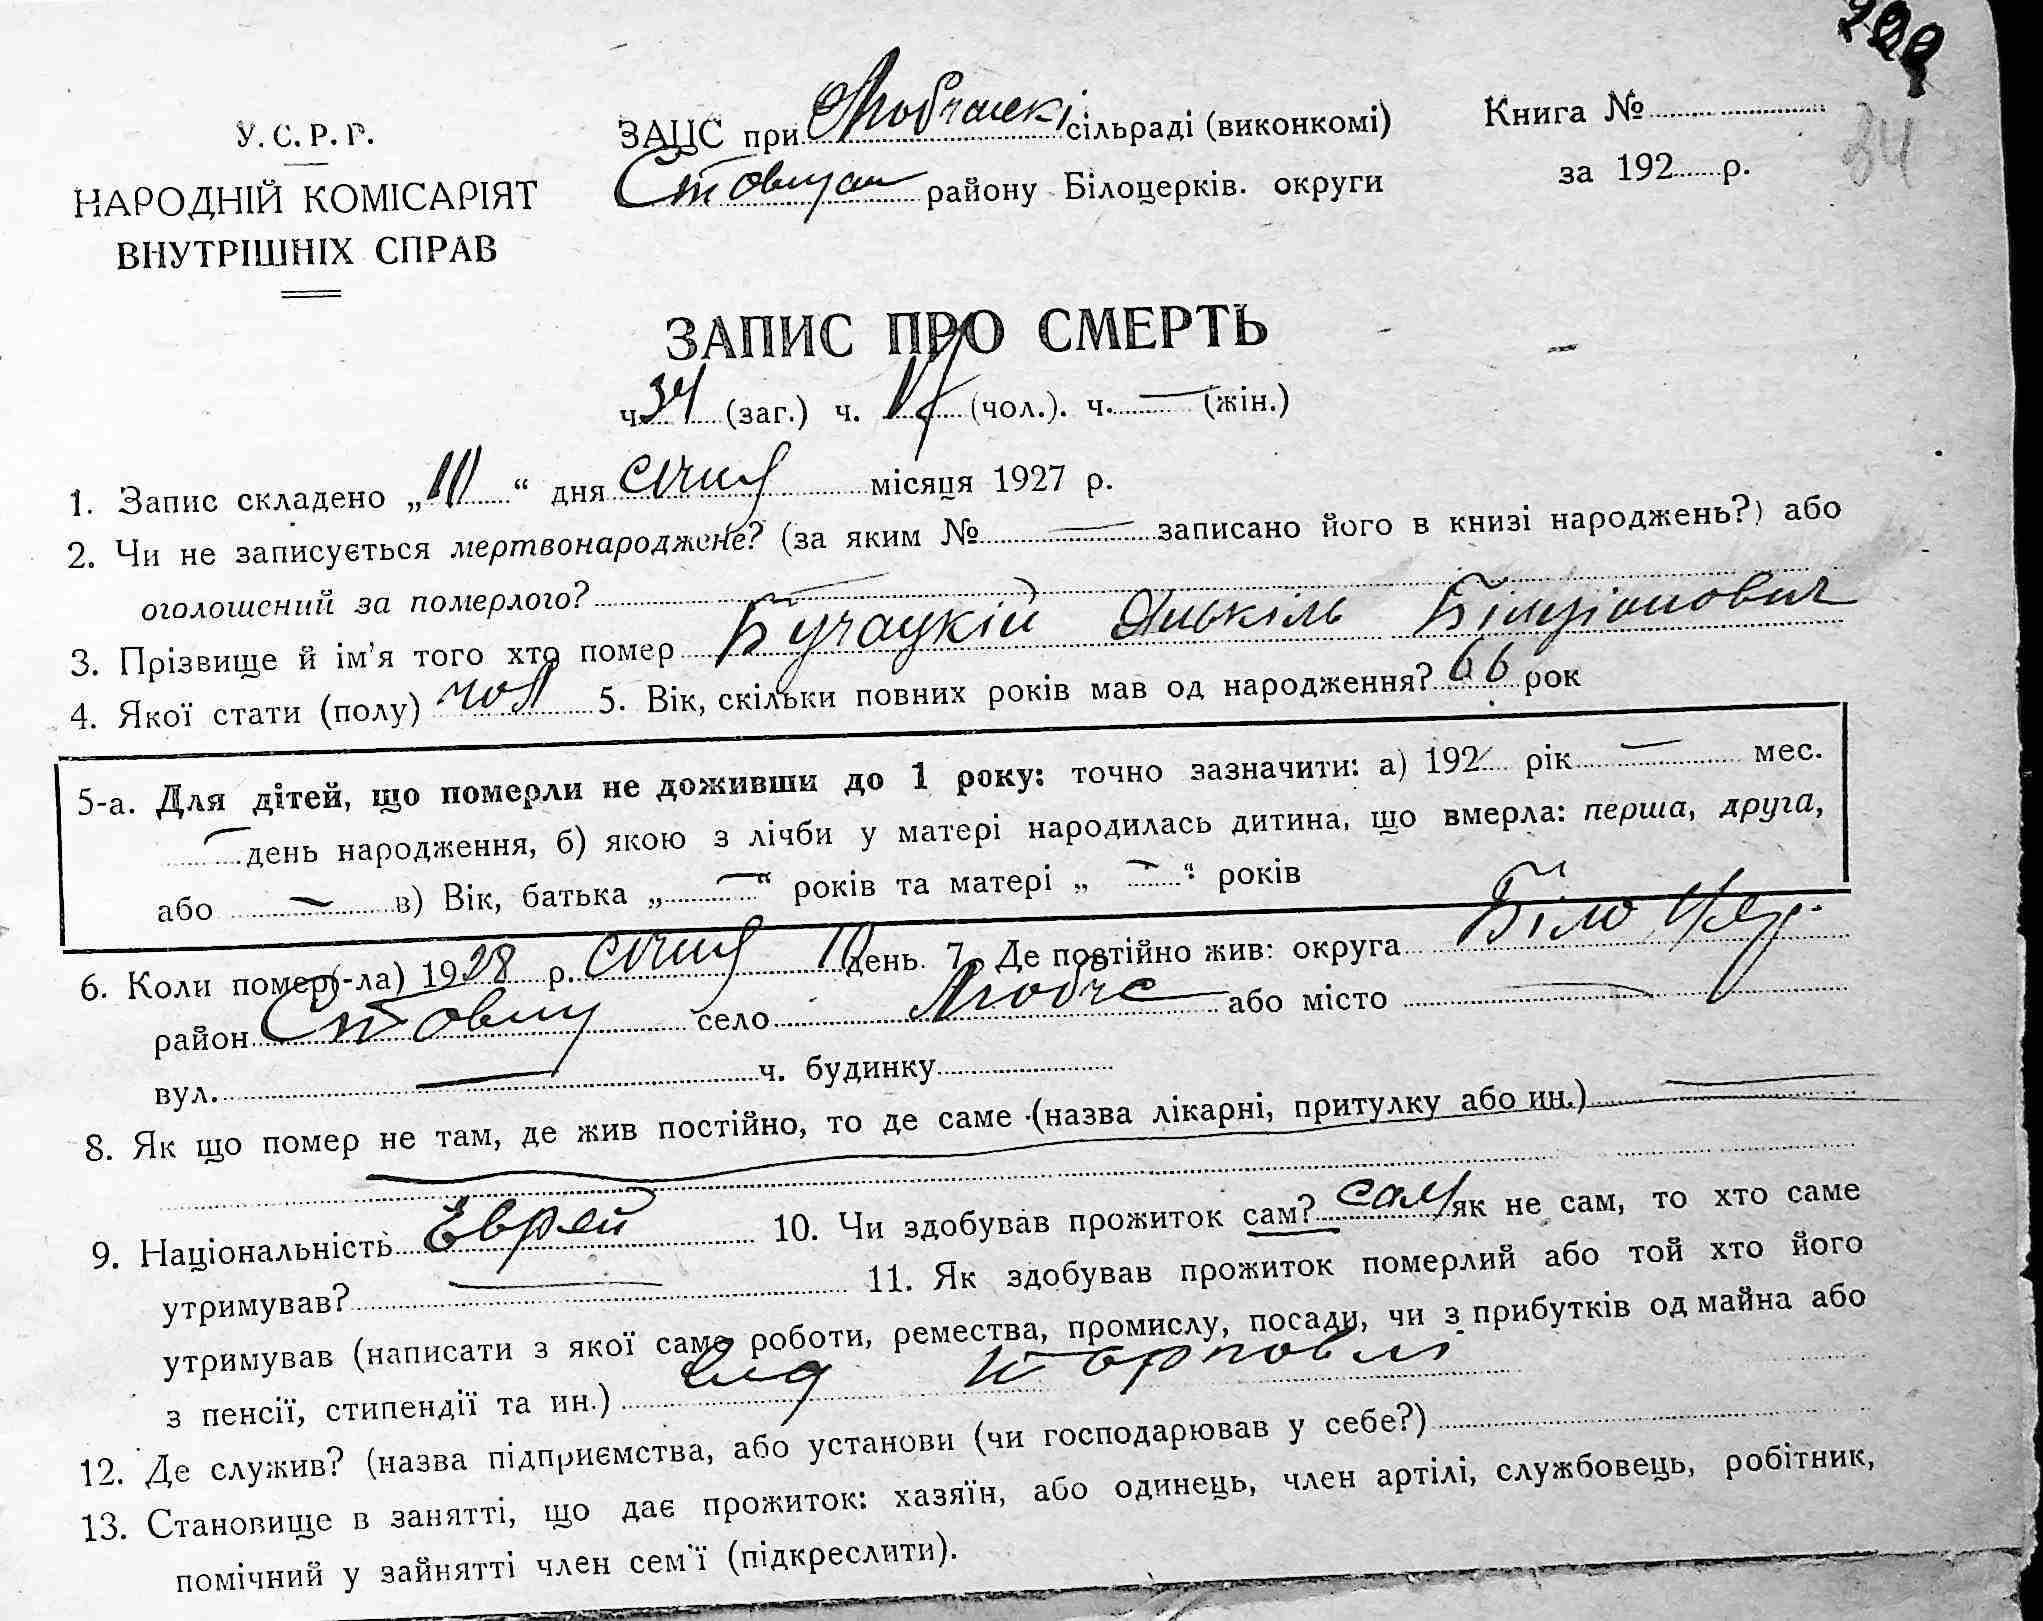 220
34
У. С. Р. Р.
НАРОДНІЙ КОМІСАРІЯТ
ВНУТРІШНІХ СПРАВ
ЗАЦС при сільраді (виконкомі)
району Білоцерків. округи
Книга №
за 192 р.
ЗАПИС ПРО СМЕРТЬ
ч. 34 (заг.) ч. (чол.). ч. — (жін.)
1. Запис складено „10“ дня січня місяця 1927 р.
2. Чи не записується мертвонароджене? (за яким № — записано його в книзі народжень?) або
оголошений за померлого? —
3. Прізвище й ім'я того хто помер Бучацкій
4. Якої стати (полу) чол 5. Вік, скільки повних років мав од народження? 66 рок
5-а. Для дітей, що померли не доживши до 1 року: точно зазначити: а) 192 рік — мес.
— день народження, б) якою з лічби у матері народилась дитина, що вмерла: перша, друга,
або — в) Вік, батька „—“ років та матері „—“ років
6. Коли помер(-ла) 1928 р. січня 10 день. 7. Де постійно жив: округа Біло Цер.
район село або місто —
вул. — ч. будинку
8. Як що помер не там, де жив постійно, то де саме (назва лікарні, притулку або ин.) —
9. Національність Еврей 10. Чи здобував прожиток сам? сам як не сам, то хто саме
утримував? — 11. Як здобував прожиток померлий або той хто його
утримував (написати з якої саме роботи, ремества, промислу, посади, чи з прибутків од майна або
з пенсії, стипендії та ин.) від торговлі
12. Де служив? (назва підприємства, або установи (чи господарював у себе?)
13. Становище в занятті, що дає прожиток: хазяїн, або одинець, член артілі, службовець, робітник,
помічний у зайнятті член сем'ї (підкреслити).